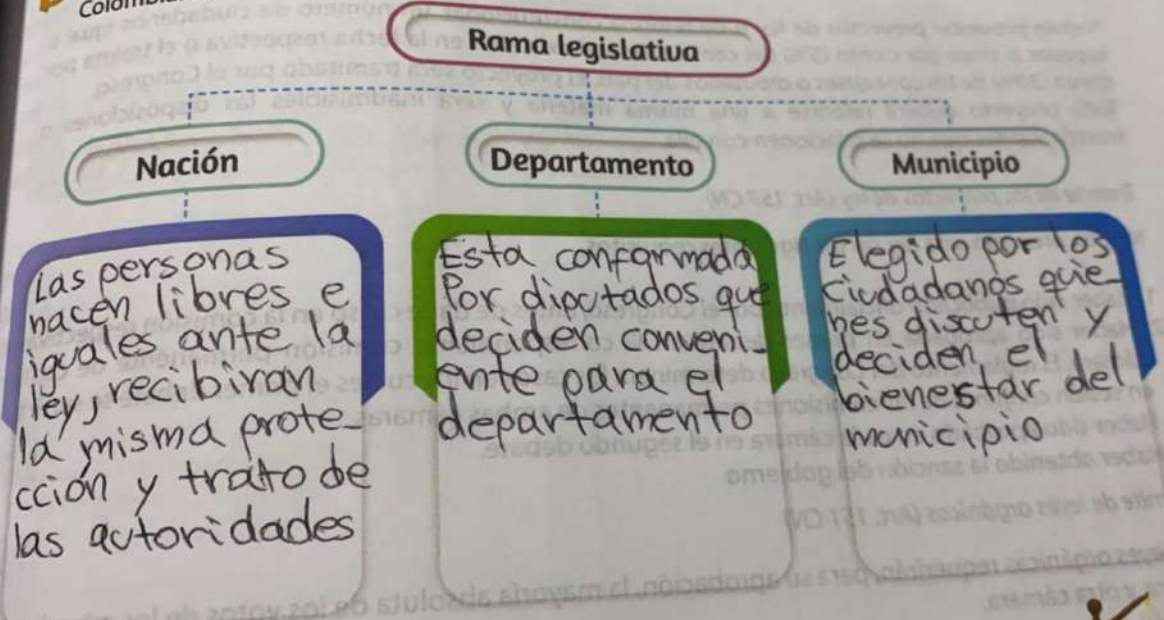 Rama legislativa
Nación
Departamento
Municipio
Las personas
nacen libres e
iguales ante la
ley, recibiran
la misma prote-
cción y trato de
las autoridades
Esta conformada
Por dioutados que
deciden conveni-
ente para el
departamento
Elegido por los
Ciudadanos quie-
nes discuten y
deciden el
bienestar del
municipio